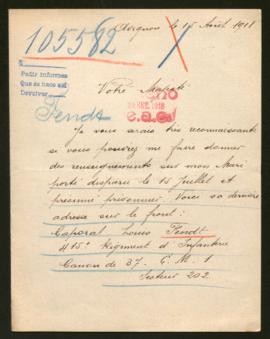 Avignon le 15 Août 1918
105582
Pedir informes
Que se hace así
Devolver
Votre Majesté
1918
Fendt
Je vous serais très reconnaissante
si vous pouvez me faire donner
des renseignements sur mon Mari
porté disparu le 15 Juillet et
présumé prisonnier. Voici sa dernière
adresse sur le front:
Caporal Louis Fendt
415e Régiment d'Infanterie
Canon de 37. C. M. 1
Secteur 202